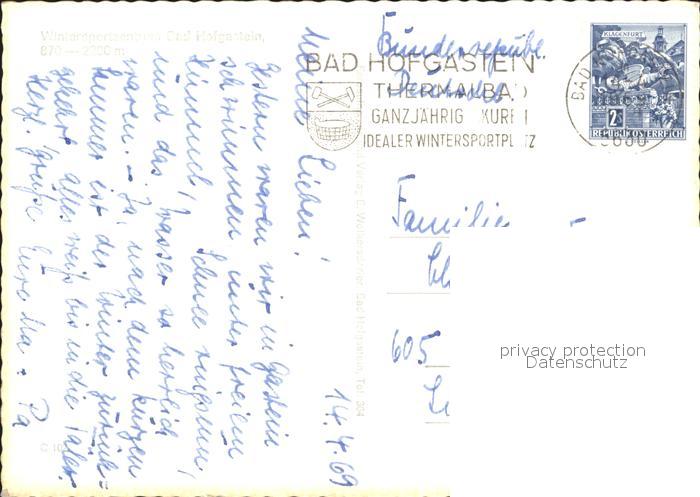 Wintersportzentrum Bad Hofgastein,
870 — 2300 m
14.4.69
Meine Lieben!
Gestern waren wir in Gastein
schwimmen, unter freiem
Himmel, Schnee ringsum,
und das Wasser so herrlich
warm. – Ja, nach dem kurzen
Sommer ist der Winter zurück-
gekehrt, alles weiß bis in die Täler.
Herzl. Grüße Eure Ma + Pa
Verlag C. Bad Hofgastein, Tel. 364
BAD HOFGASTEIN
THERMALBAD
GANZJÄHRIG KURE
IDEALER WINTERSPORTPLATZ
BAD
5630
KLAGENFURT
2S
REPUBLIK ÖSTERREICH
Bundesrepubl.
Familie
605
privacy protection
Datenschutz